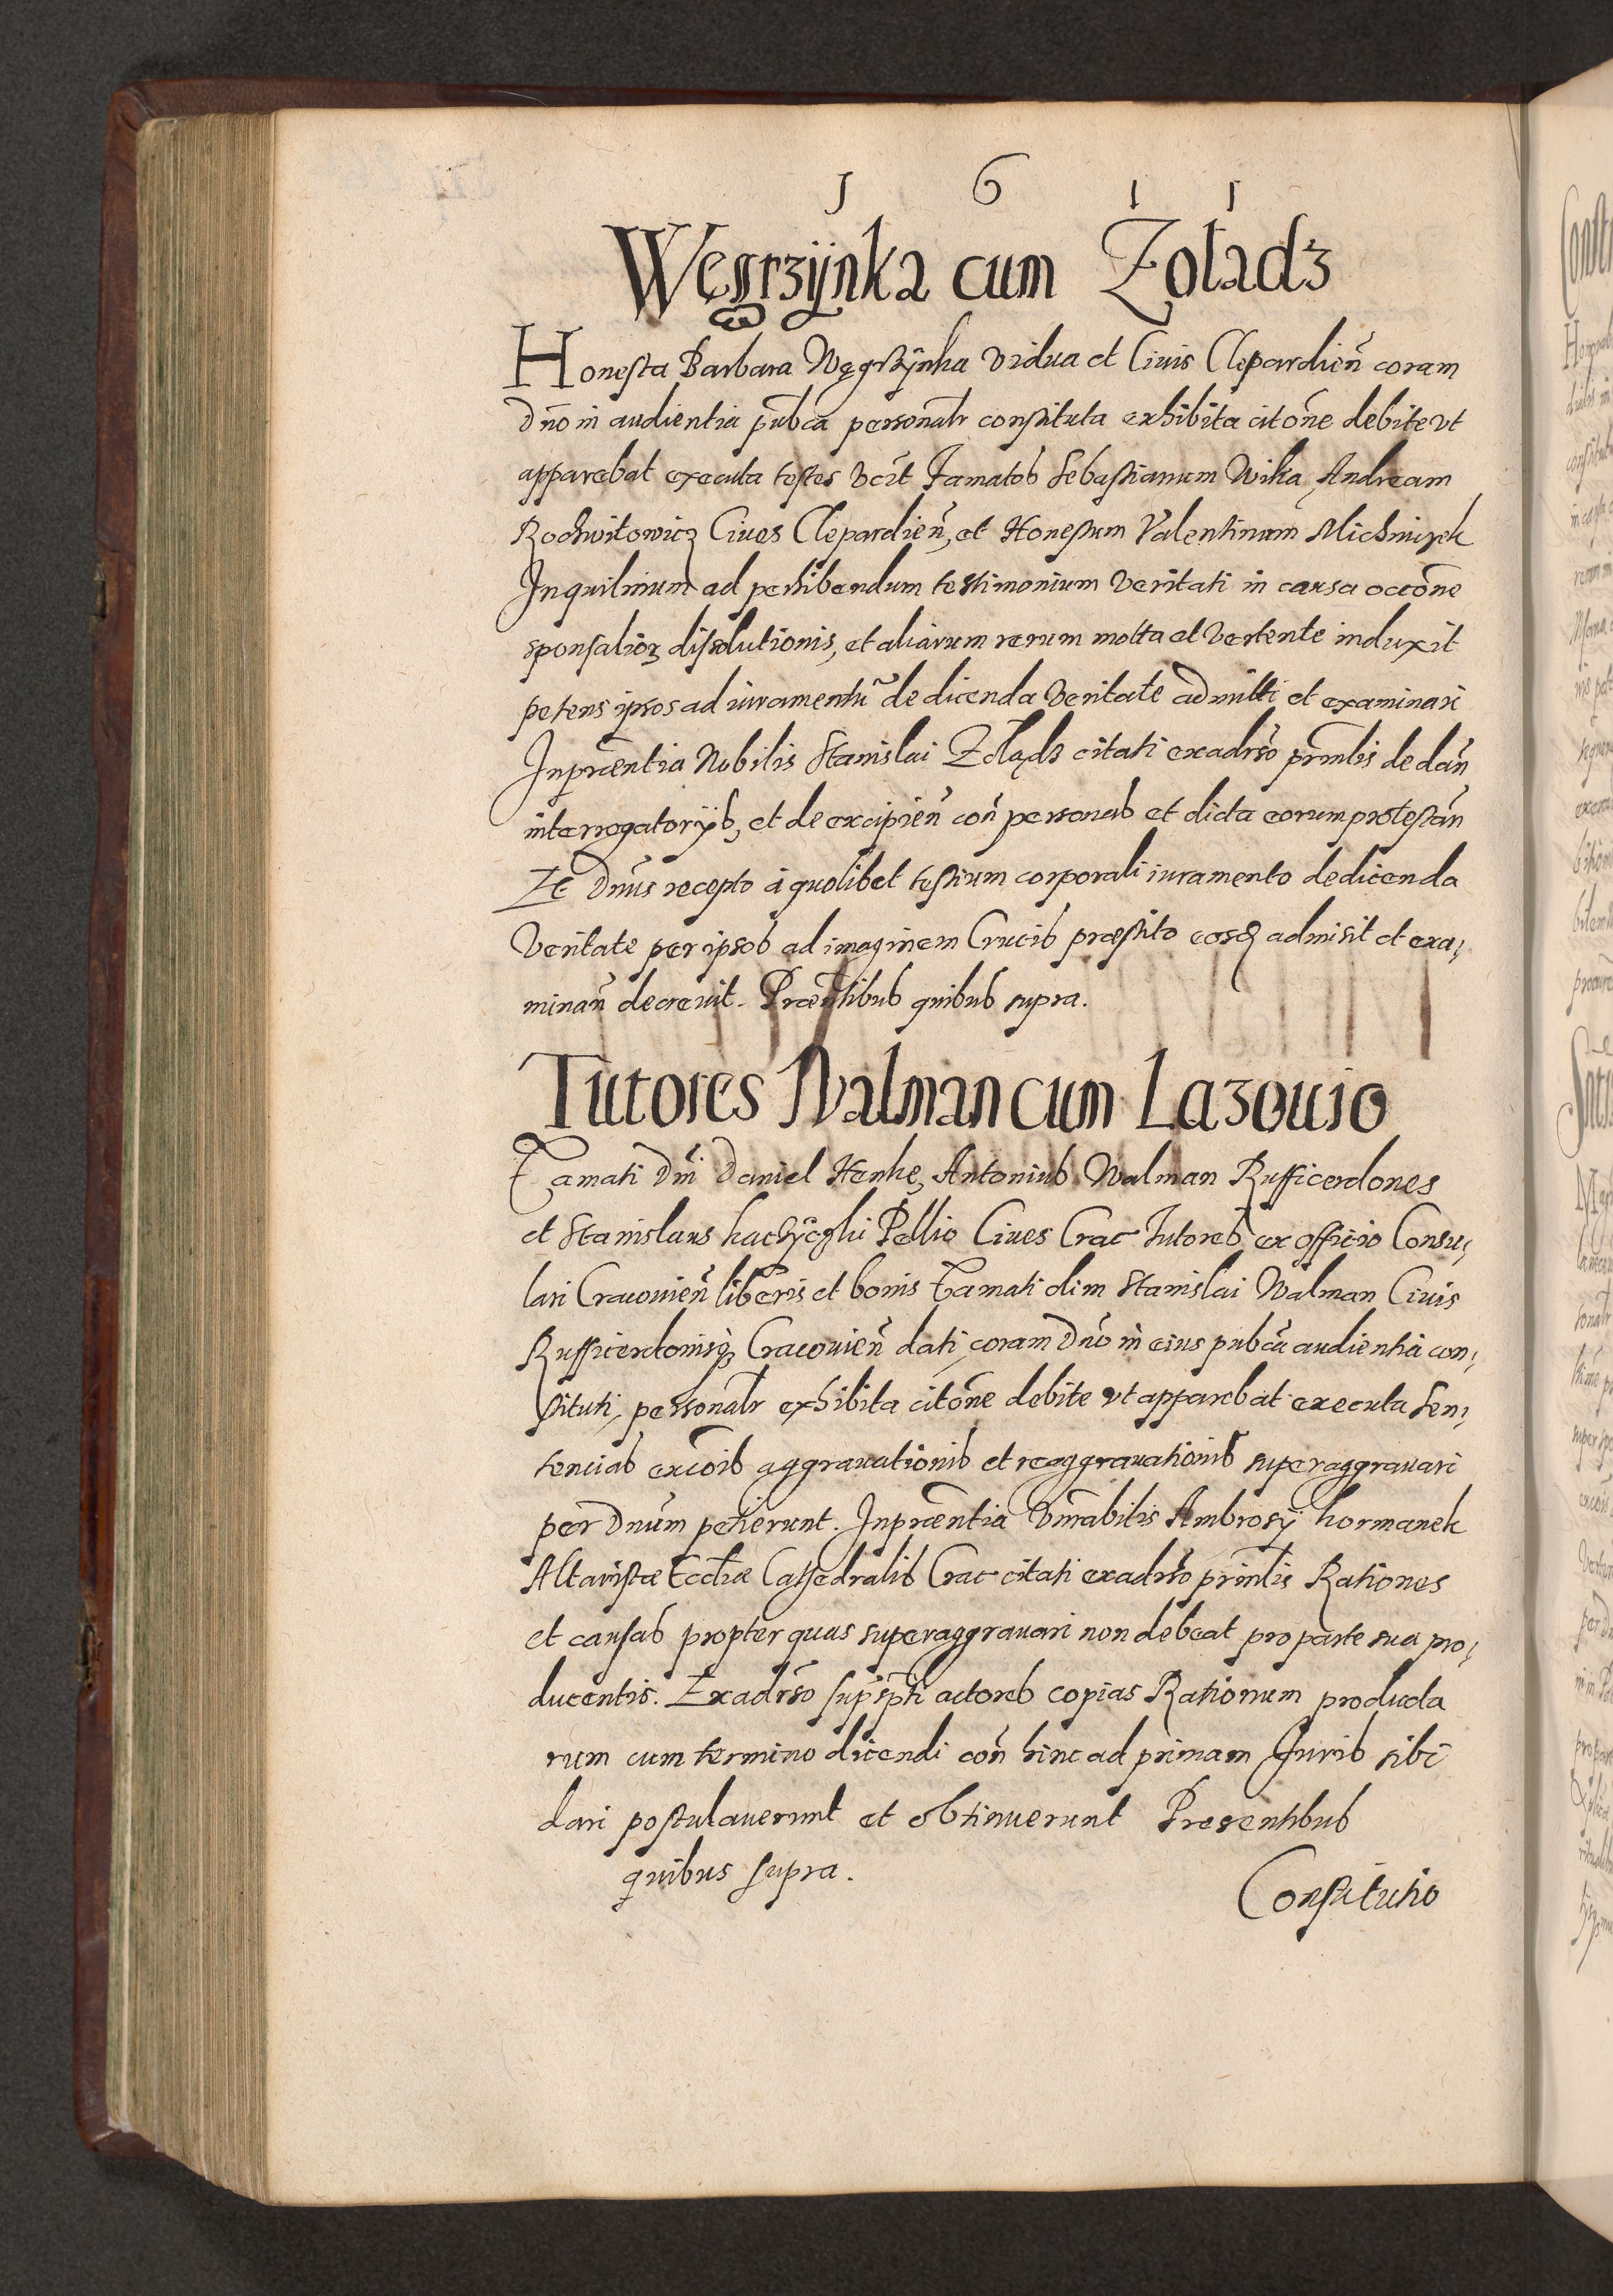 1 6 1 1
Węgrzÿnka cum Żołądz
Honesta Barbara Węgrzÿnka vidua et Civis Clepardieñ coram
Dño in audientia pubca personalr constituta exhibita citõne debite vt
apparebat executa testes vczt Famatos Sebastianum Wilka, Andream
Rochwitowicz Cives Clepardieñ, et Honestum Valentinum
Inquilinum ad perhibendum testimonium veritati in causa occõne
sponsalior dissolutionis, et aliarum rerum mota et vertente induxit
petens ipsos ad iuramentũ de dicenda veritate admitti et examinari
In præntia Nobilis Stanislai Żolądz citati ex adrso prñtis de dañ
interrogatorÿs, et de excipieñ coñ personas et dicta eorum protestañ
Et Dñus recepto à quolibet testium corporali iuramento de dicenda
veritate per ipsos ad imaginem Crucis præstito eosq admisit et exa,
minañ decrevit. Præntibus quibus supra.
Tutores Walman cum Lazouio
Famati Dñi Daniel Henke, Antonius Walman Rufficerdones
et Stanislaus Pellio Ciues Crac Tutores ex officio Consu,
lari Cracouieñ liberis et bonis Famati olim Stanislai Walman Ciuis
Rufficerdonisq Cracouieñ dati, coram Dño in eius pubca audientia con,
stituti, personalr exhibita citõne debite vt apparebat executa Sen,
tencias excõis aggrauationis et reaggrauationis superaggrauari
per Dñum petierunt. In præntia Vnrabilis Ambrosÿ Kormanek
Altaristæ Eccliæ Cathedralis Crac citati ex adrso prñtis Rationes
et causas propter quas superaggrauari non debeat pro parte sua pro,
ducentis. Ex adrso supspti actores copias Rationum producta
rum cum termino dicendi coñ hinc ad primam Iuris sibi
dari postulauerunt et obtinuerunt Presentibus
quibus supra.
Constitutio